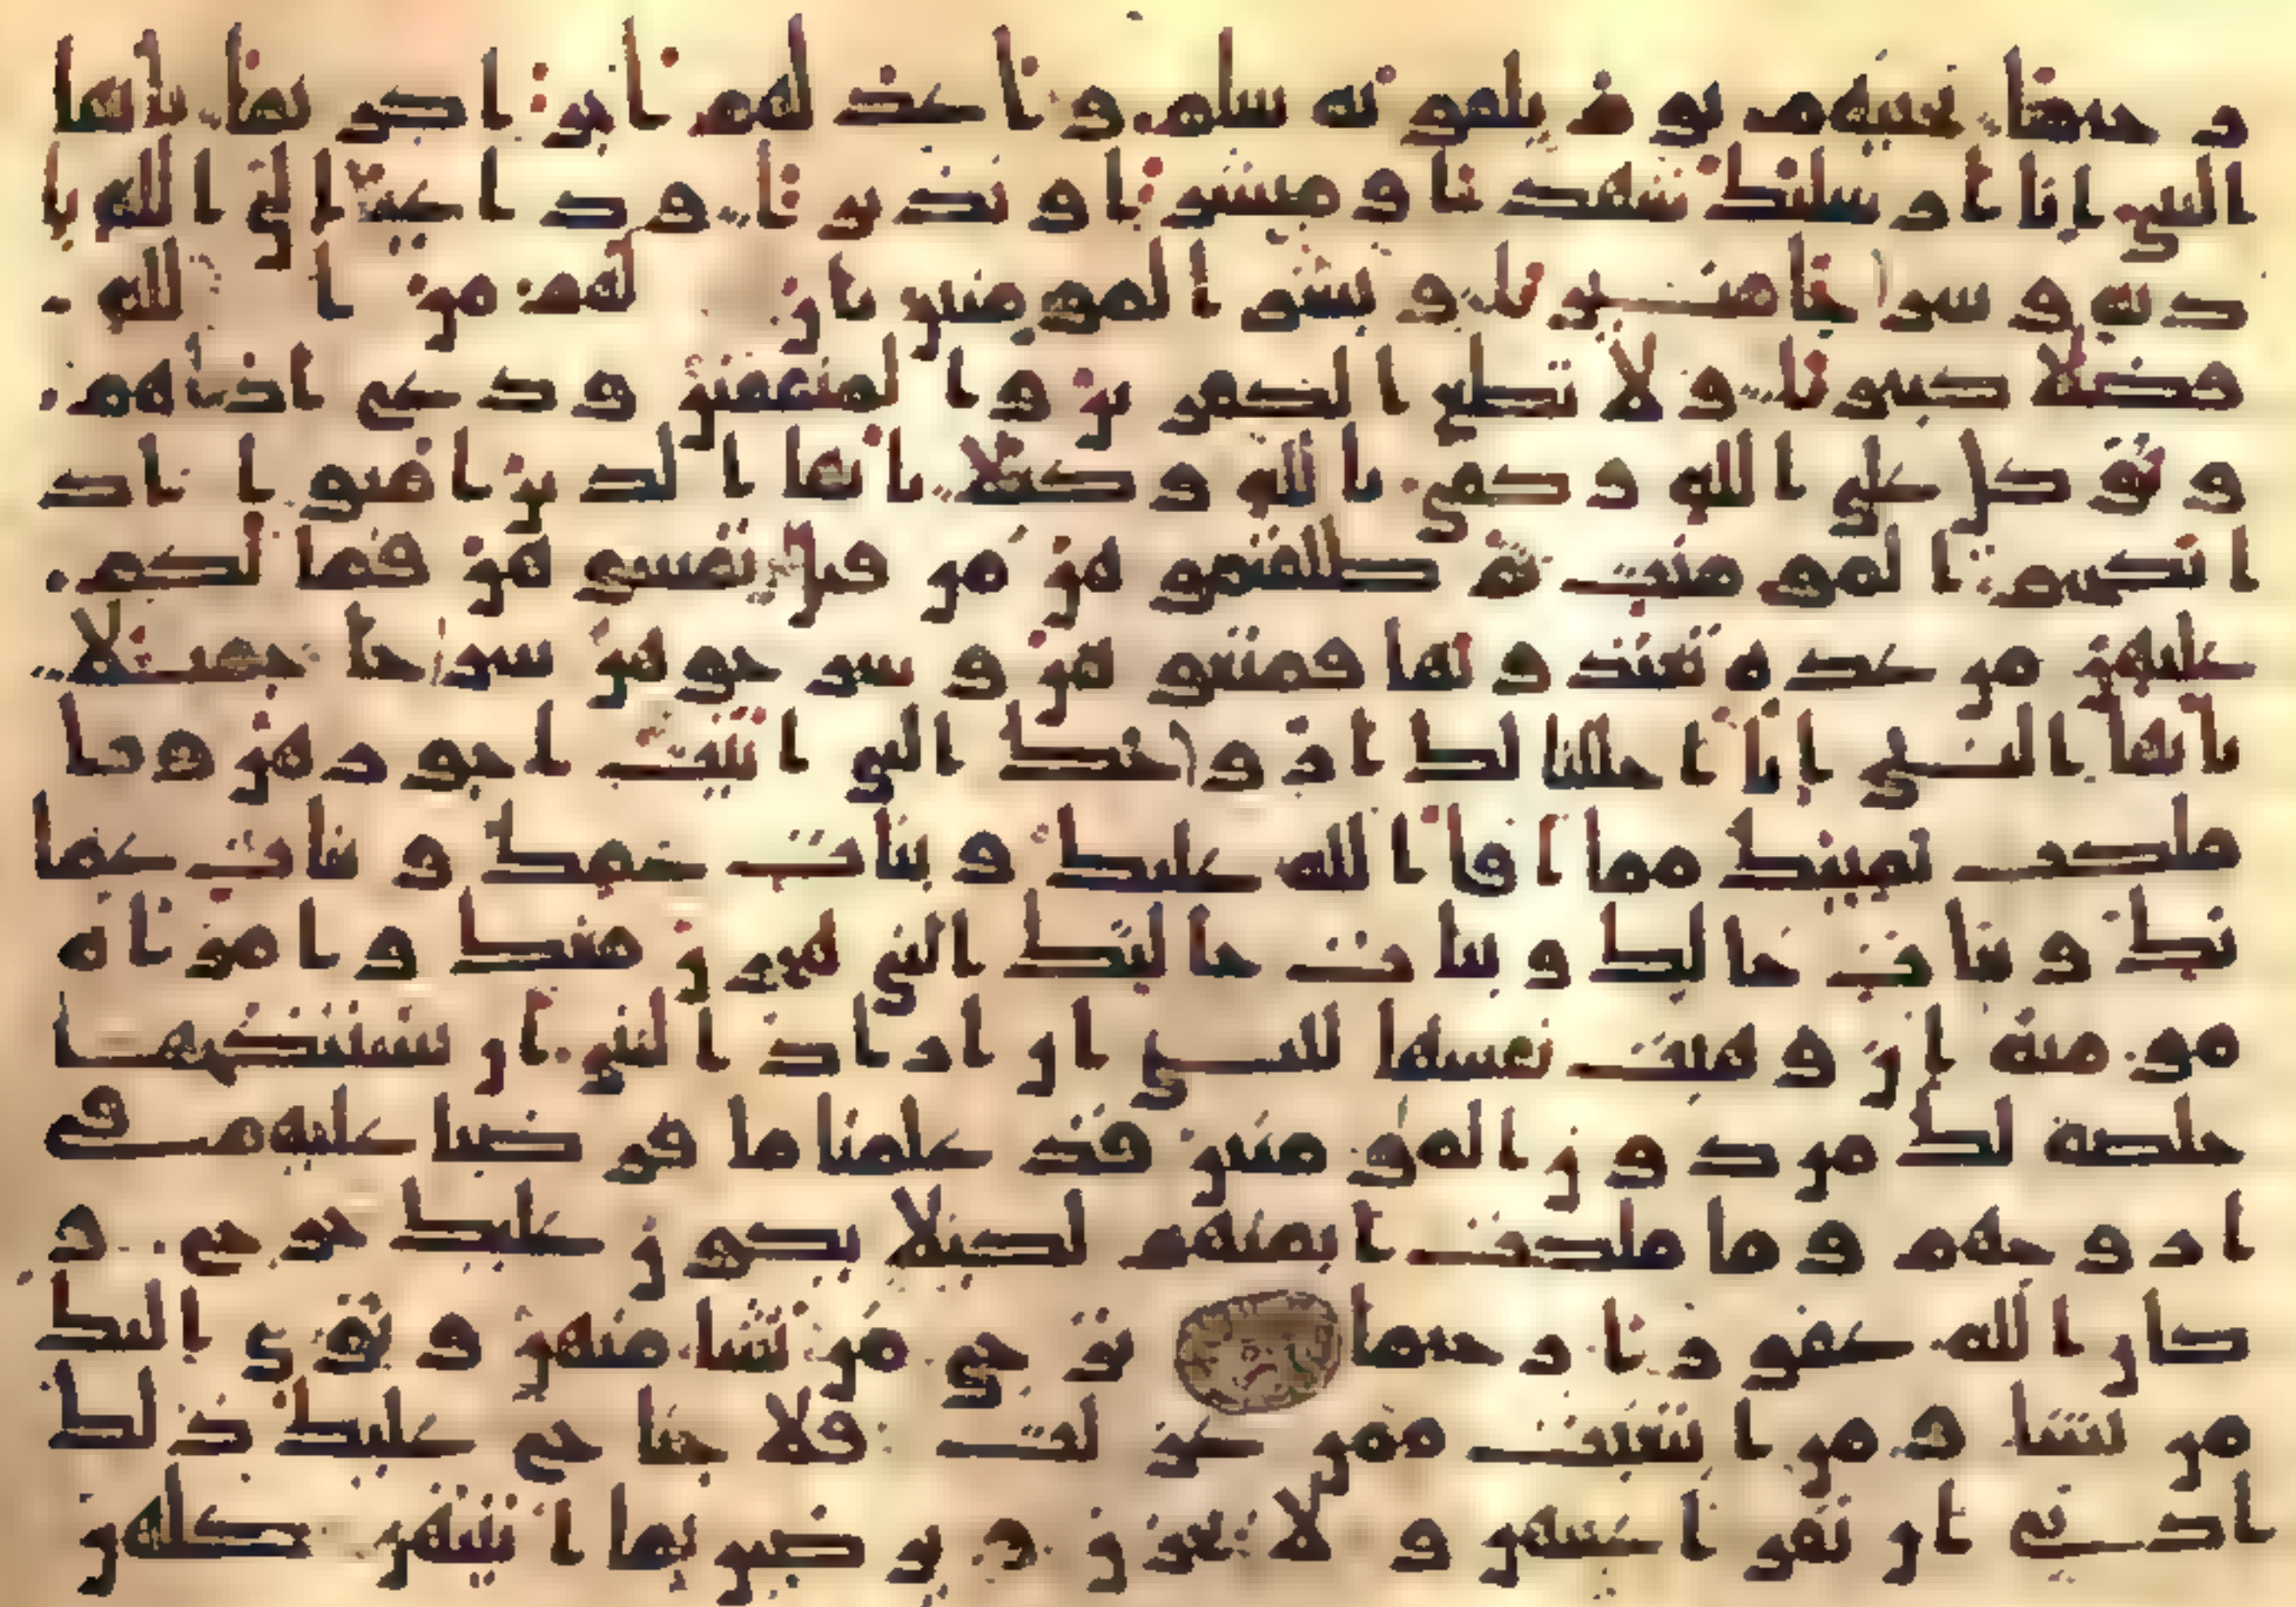 رحيما تحيتهم يوم يلقونه سلم واعد لهم اجرا كريما يايها
النبي انا ارسلنك شهدا ومبشرا ونذيرا وداعيا الى الله با
ذنه وسراجا منيرا وبشر المومنين بان لهم من الله
فضلا كبيرا ولا تطع الكفرين والمنفقين ودع اذيهم
وتوكل على الله وكفى بالله وكيلا يايها الذين امنوا اذا
نكحتم المومنت ثم طلقتموهن من قبل ان تمسوهن فما لكم
عليهن من عدة تعتدونها فمتعوهن وسرحوهن سراحا جميلا
يايها النبي انا احللنا لك ازواجك التي اتيت اجورهن وما
ملكت يمينك مما افا الله عليك وبنات عمك وبنات عما
تك وبنات خالك وبنات خالتك التي هجرن معك وامراة
مومنة ان وهبت نفسها للنبي ان اراد النبي ان يستنكحها
خلصة لك من دون المومنين قد علمنا ما فرضنا عليهم في
ازوجهم وما ملكت ايمنهم لكيلا يكون عليك حرج و
كان الله غفورا رحيما ترجي من تشا منهن وتوي اليك
من تشا ومن ابتغيت ممن عزلت فلا جناح عليك ذلك
ادنى ان تقر اعينهن ولا يحزن ويرضين بما اتيتهن كلهن